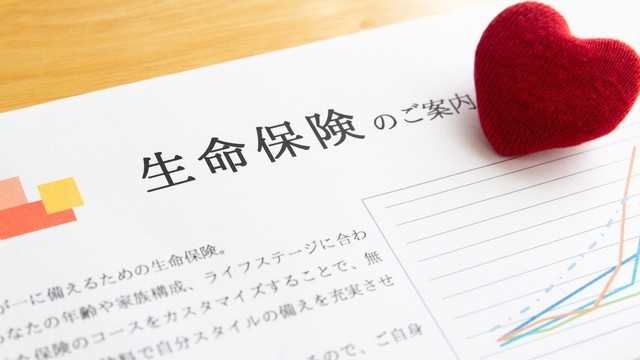 生命保険のご案内
が一に備えるための生命保険。
なたの年齢や家族構成、ライフステージに合わ
た保険のコースをカスタマイズすることで、無
料で自分スタイルの備えを充実させ
るので、ご自身